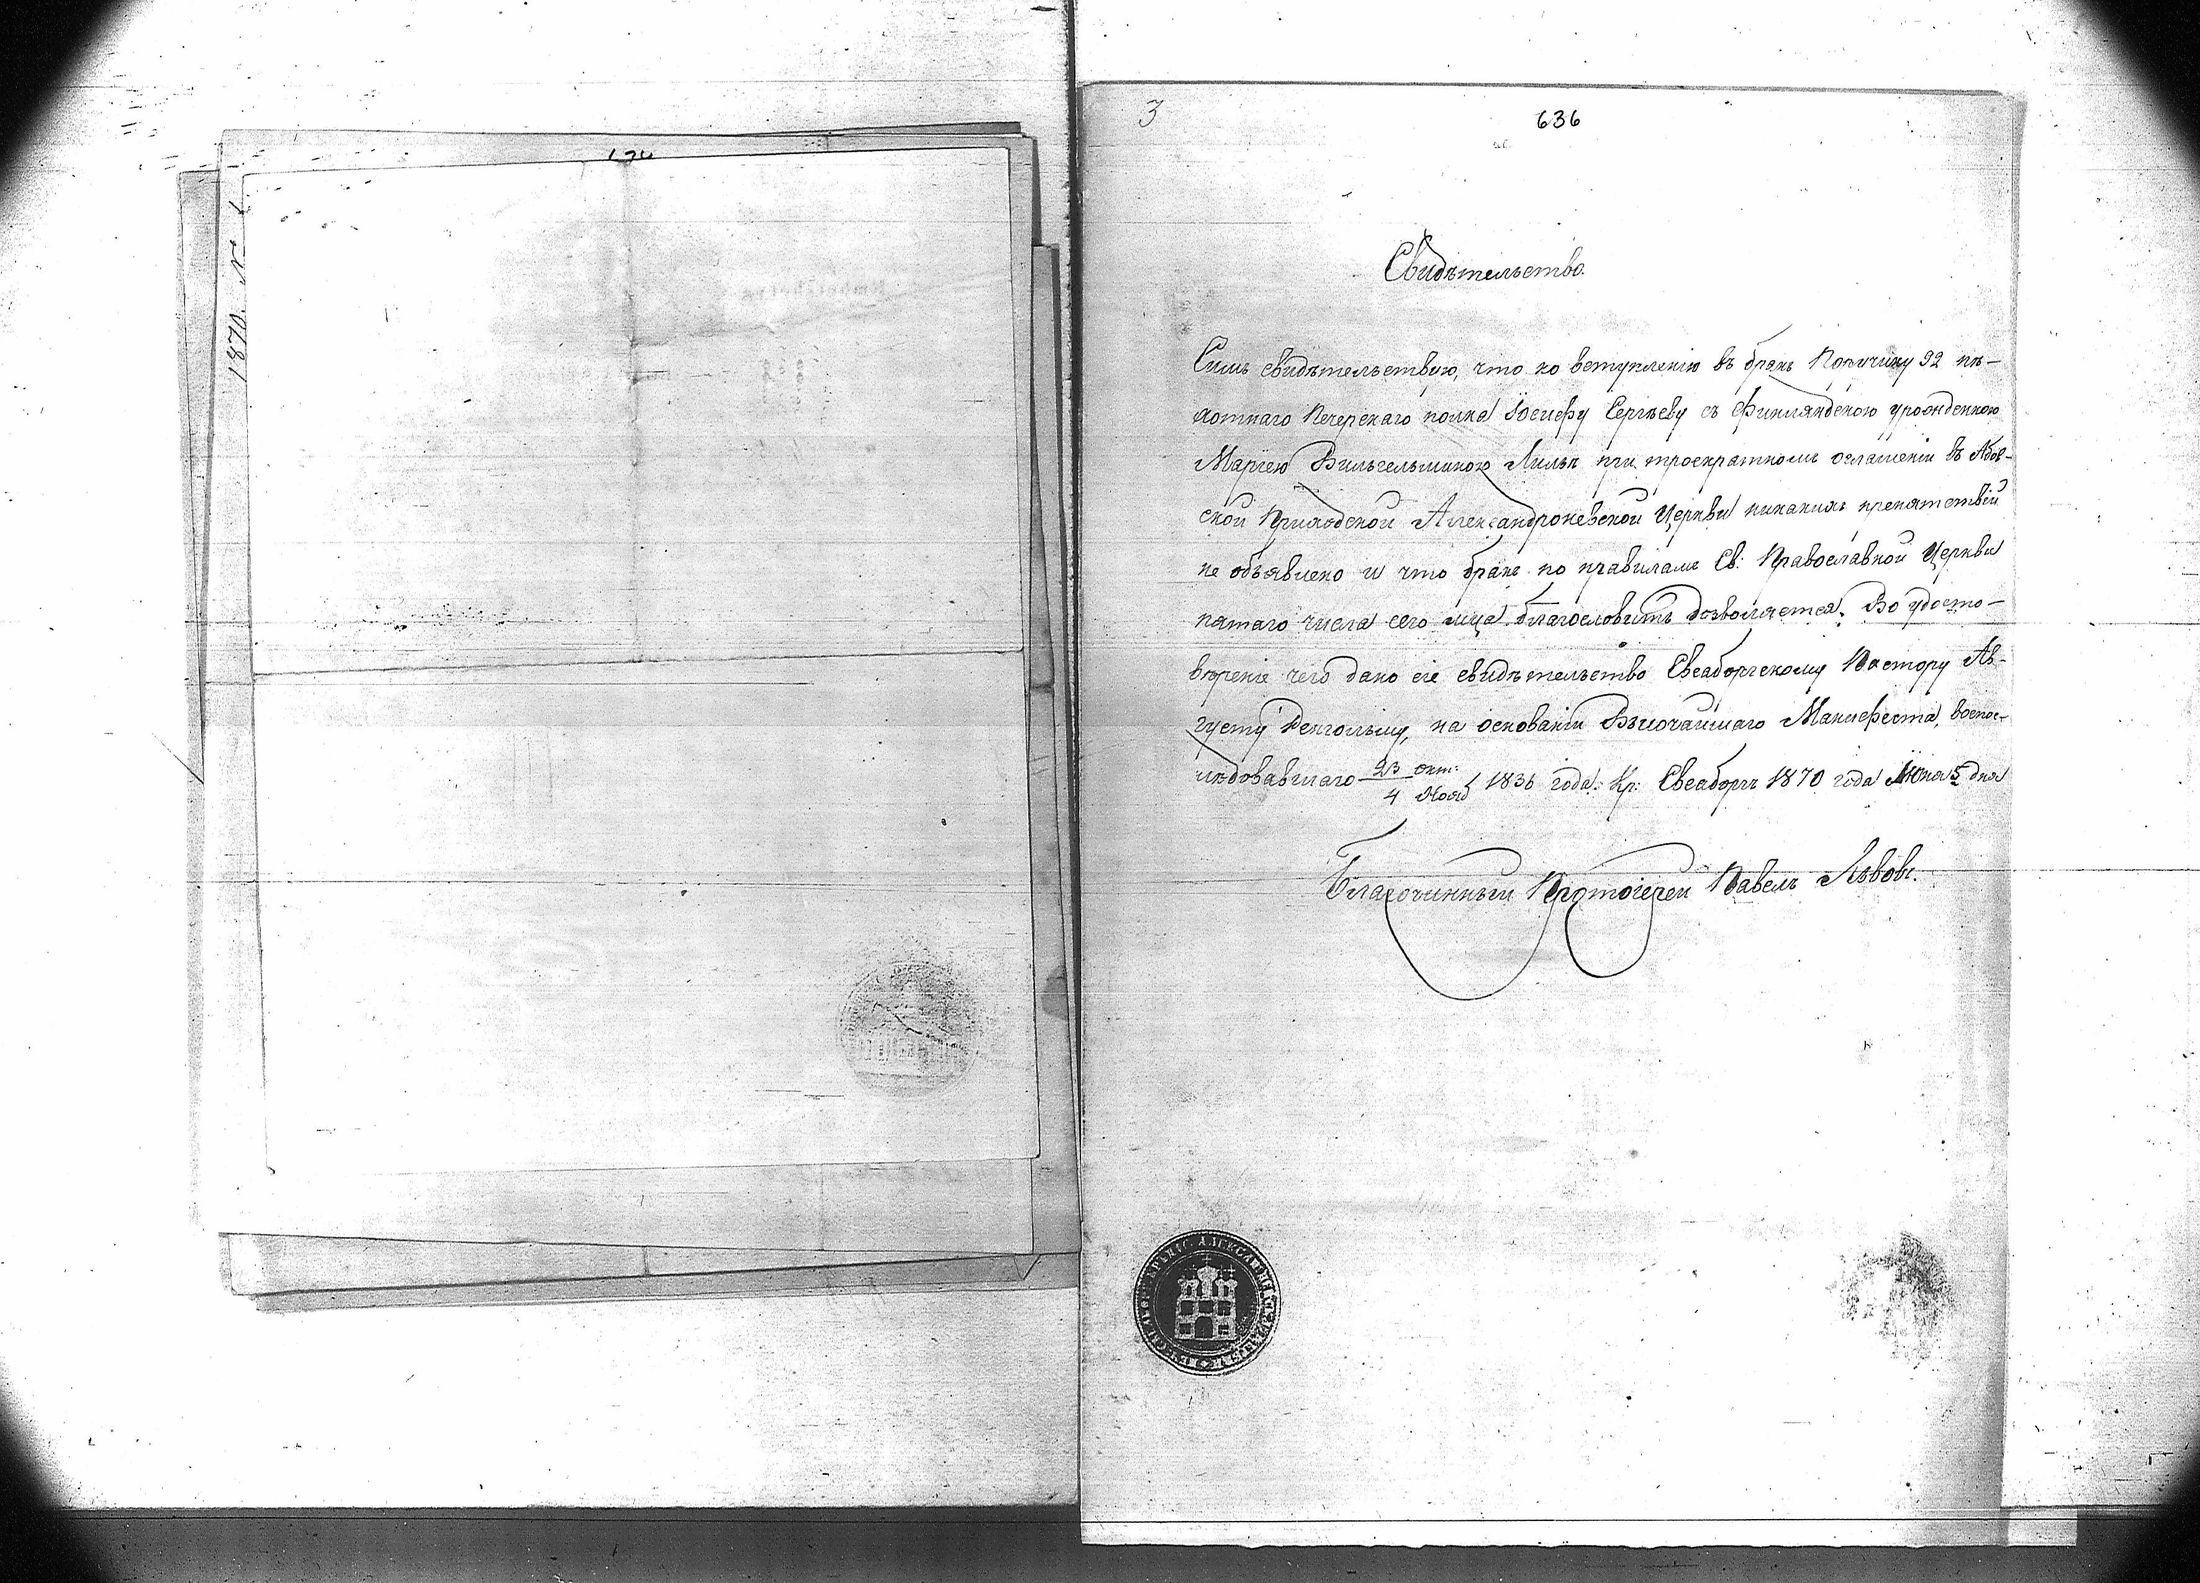 1870. N 1
3
636
Свидѣтельство.
Симъ свидѣтельствую, что ко вступленію въ бракъ Поручику 92 пѣ-
хотнаго Печерскаго полка Іосифу Сергѣеву съ Финляндскою урожденкою
Маріею Вильгельминою Лильѣ при троекратномъ оглашеніи въ Абов-
ской Приходской Александроневской Церкви никакихъ препятствій
не объявлено и что бракъ по правиламъ Св: Православной Церкви
пятаго числа сего мца благословить дозволяется. Во удосто-
вѣреніе чего дано сіе свидѣтельство Свеаборгскому Пастору Ав-
густу Ренгольму, на основаніи Высочайшаго Манифеста, воспос-
лѣдовавшаго 23 окт: / 4 Нояб 1836 года. Кр: Свеаборгъ 1870 года Іюня 5 дня
Благочинный Протоіерей Павелъ Львовъ.